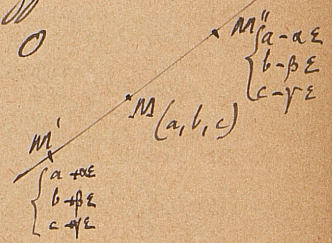 M"
{a-αε
b-βε
c-γε
M
(a, b, c)
M'
{a+αε
b+βε
c+γε